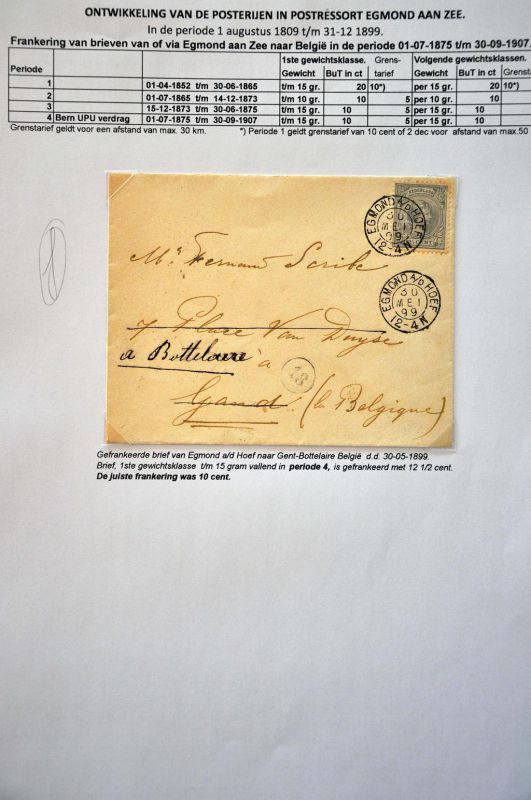 ONTWIKKELING VAN DE POSTERIJEN IN POSTRESSORT EGMOND AAN ZEE.
In de periode 1 augustus 1809 t/m 31-12 1899.
Frankering van brieven van of via Egmond aan Zee naar België in de periode 01-07-1875 t/m 30-09-1907.
1ste gewichtsklasse. Grens- Volgende gewichtsklassen.
Periode Gewicht BuT in ct tarief Gewicht BuT in ct Grenst
1 01-04-1852 t/m 30-06-1865 t/m 15 gr. 20 10*) per 15 gr. 20 10*)
2 01-07-1865 t/m 14-12-1873 t/m 10 gr. 10 5 per 10 gr. 10
3 15-12-1873 t/m 30-06-1875 t/m 15 gr. 10 5 per 15 gr. 10
4 Bern UPU verdrag 01-07-1875 t/m 30-09-1907 t/m 15 gr. 10 5 per 15 gr. 10
Grenstarief geldt voor een afstand van max. 30 km. *) Periode 1 geldt grenstarief van 10 cent of 2 dec voor afstand van max.50
NEDERLAND
CENT
EGMOND A/D HOEF
30
MEI
99
12-4N
Mr Fernand Scribe
EGMOND A/D HOEF
30
MEI
99
12-4N
7 Place Van Duyse
a Bottelaere à
18
Gand. (la Belgique)
Gefrankeerde brief van Egmond a/d Hoef naar Gent-Bottelaire België d.d. 30-05-1899.
Brief, 1ste gewichtsklasse t/m 15 gram vallend in periode 4, is gefrankeerd met 12 1/2 cent.
De juiste frankering was 10 cent.